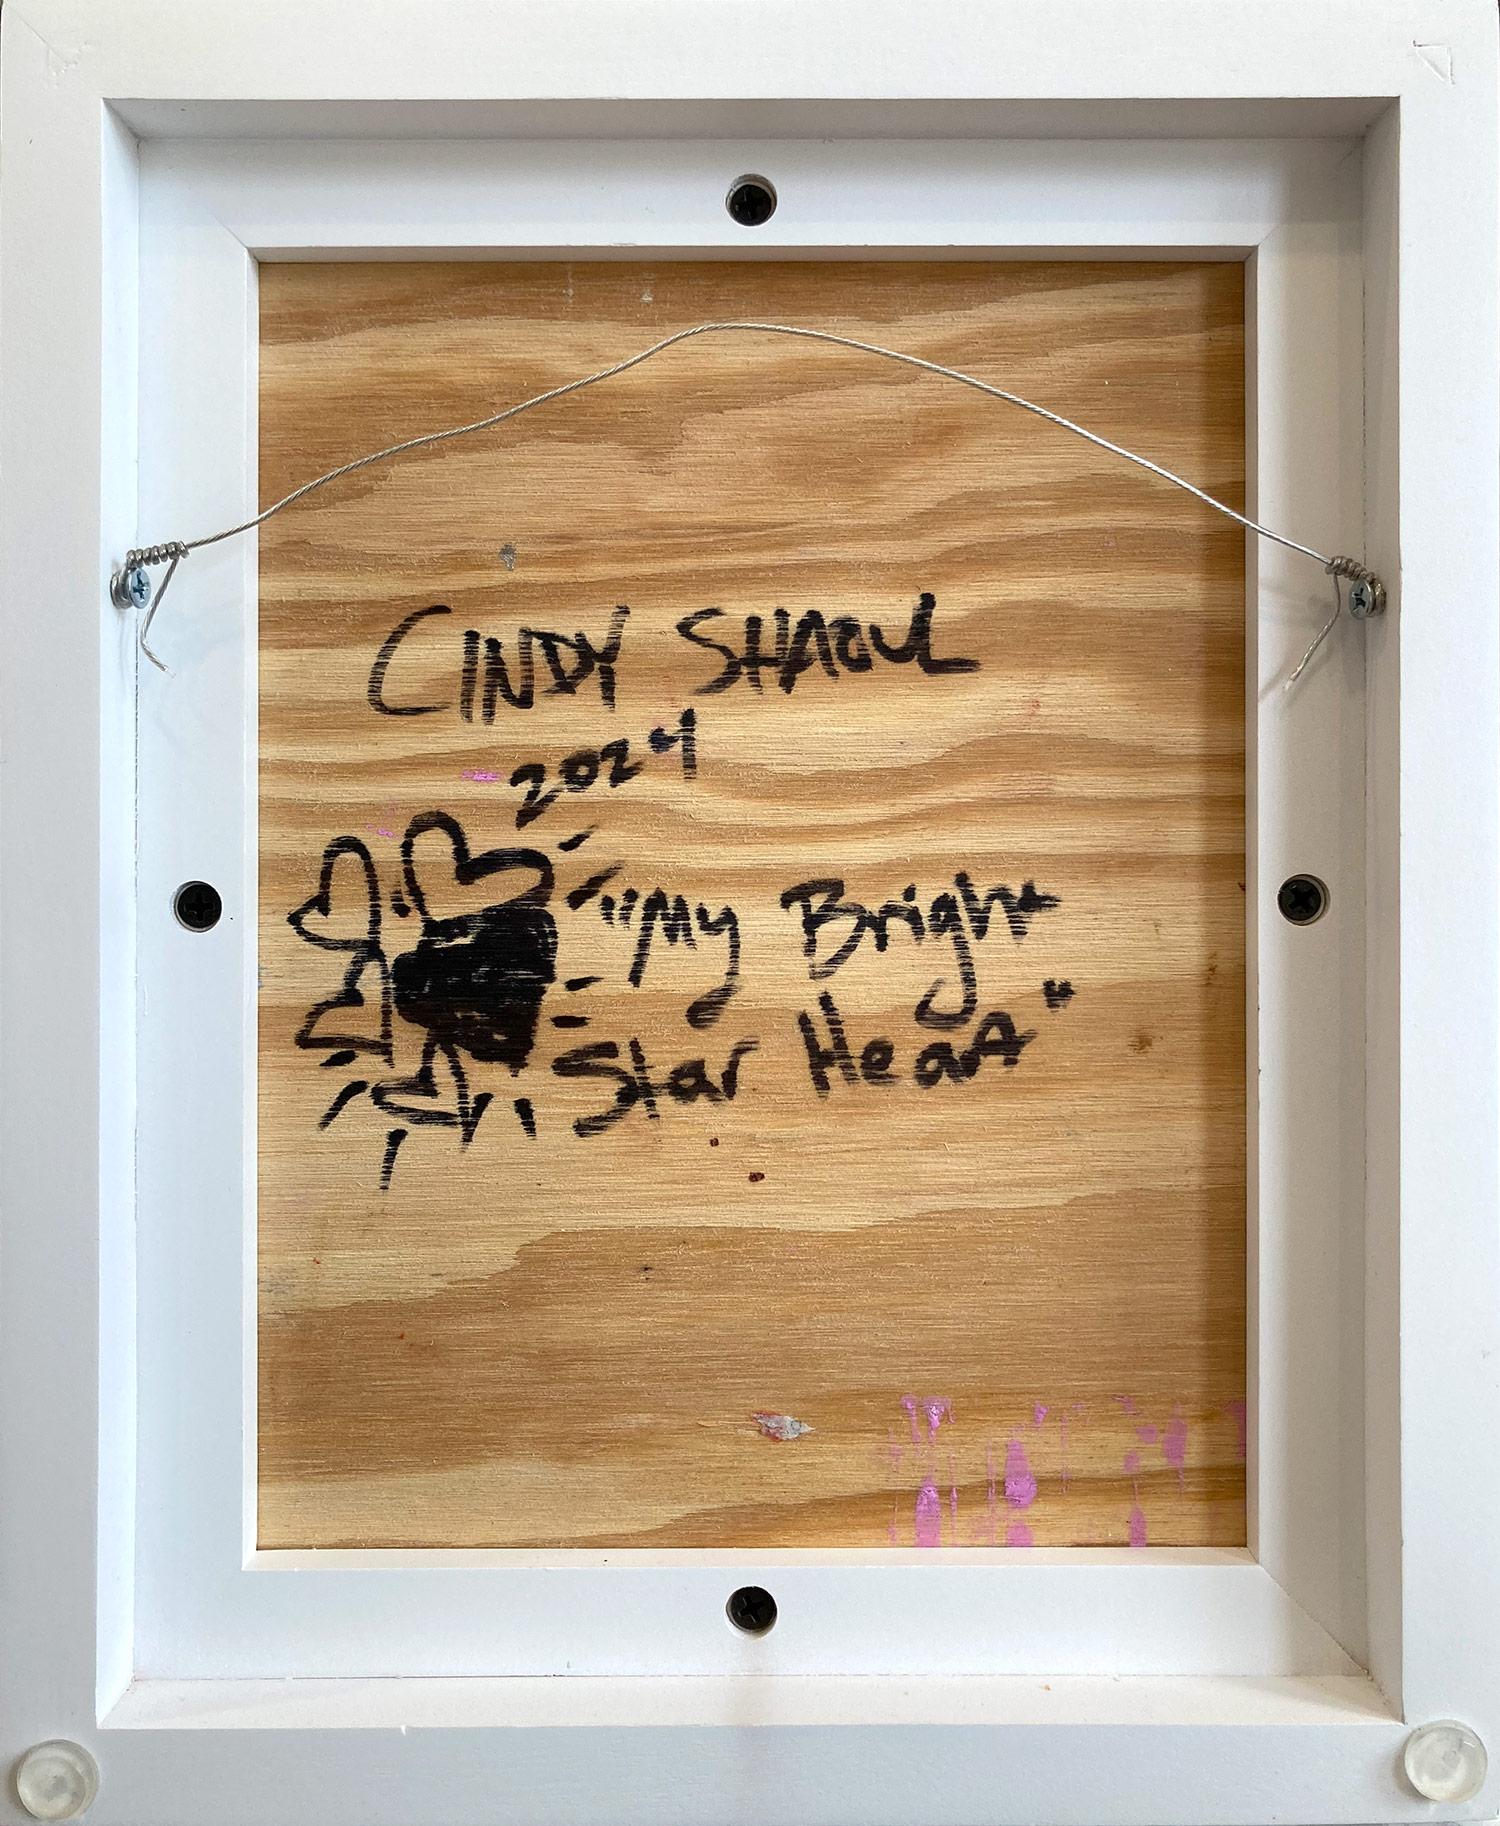 CINDY SHAOUL
2024
"My Bright
Star Heart"